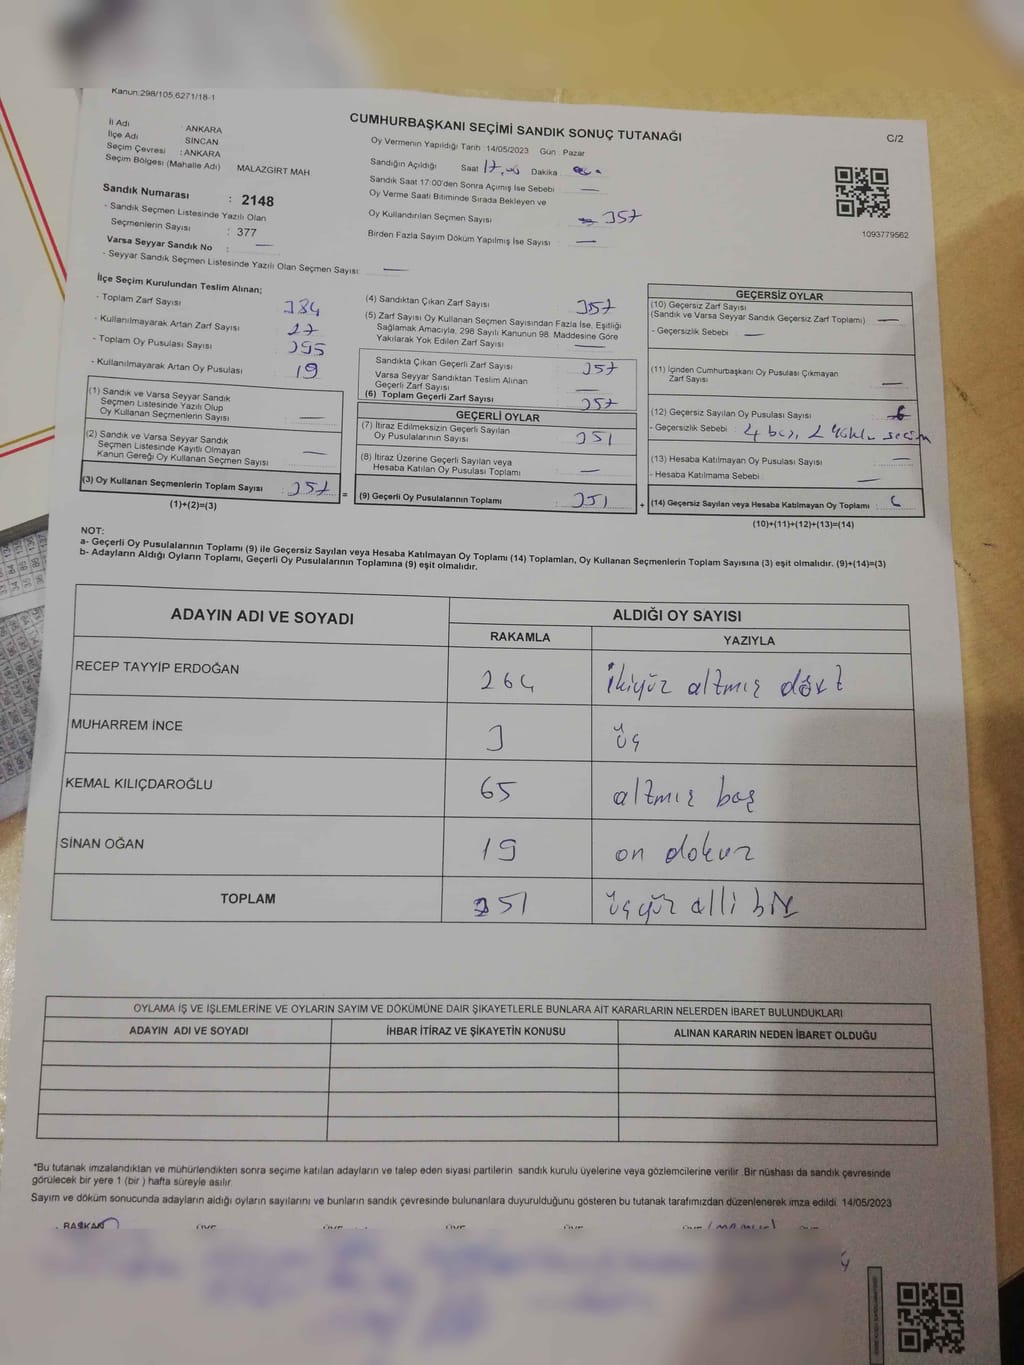 Kanun:298/105,6271/18-1
CUMHURBAŞKANI SEÇİMİ SANDIK SONUÇ TUTANAĞI
C/2
İl Adı : ANKARA
İlçe Adı SİNCAN
Seçim Çevresi : ANKARA
Seçim Bölgesi (Mahalle Adı) MALAZGİRT MAH
Sandık Numarası : 2148
- Sandık Seçmen Listesinde Yazılı Olan
Seçmenlerin Sayısı : 377
Varsa Seyyar Sandık No : —
- Seyyar Sandık Seçmen Listesinde Yazılı Olan Seçmen Sayısı: —
Oy Vermenin Yapıldığı Tarih : 14/05/2023 Gün : Pazar
Sandığın Açıldığı Saat 17,00 Dakika
Sandık Saat 17:00'den Sonra Açımış İse Sebebi —
Oy Verme Saati Bitiminde Sırada Bekleyen ve
Oy Kullandırılan Seçmen Sayısı 357
Birden Fazla Sayım Döküm Yapılmış İse Sayısı —
1093779562
İlçe Seçim Kurulundan Teslim Alınan;
- Toplam Zarf Sayısı 384
- Kullanılmayarak Artan Zarf Sayısı 27
- Toplam Oy Pusulası Sayısı 395
- Kullanılmayarak Artan Oy Pusulası 19
(1) Sandık ve Varsa Seyyar Sandık
Seçmen Listesinde Yazılı Olup
Oy Kullanan Seçmenlerin Sayısı —
(2) Sandık ve Varsa Seyyar Sandık
Seçmen Listesinde Kayıtlı Olmayan
Kanun Gereği Oy Kullanan Seçmen Sayısı —
(3) Oy Kullanan Seçmenlerin Toplam Sayısı 357 =
(1)+(2)=(3)
(4) Sandıktan Çıkan Zarf Sayısı 357
(5) Zarf Sayısı Oy Kullanan Seçmen Sayısından Fazla İse, Eşitliği
Sağlamak Amacıyla, 298 Sayılı Kanunun 98. Maddesine Göre
Yakılarak Yok Edilen Zarf Sayısı —
Sandıkta Çıkan Geçerli Zarf Sayısı 357
Varsa Seyyar Sandıktan Teslim Alınan
Geçerli Zarf Sayısı —
(6) Toplam Geçerli Zarf Sayısı 357
GEÇERLİ OYLAR
(7) İtiraz Edilmeksizin Geçerli Sayılan
Oy Pusulalarının Sayısı 351
(8) İtiraz Üzerine Geçerli Sayılan veya
Hesaba Katılan Oy Pusulası Toplamı —
(9) Geçerli Oy Pusulalarının Toplamı 351 +
GEÇERSİZ OYLAR
(10) Geçersiz Zarf Sayısı
(Sandık ve Varsa Seyyar Sandık Geçersiz Zarf Toplamı) —
- Geçersizlik Sebebi : —
(11) İçinden Cumhurbaşkanı Oy Pusulası Çıkmayan
Zarf Sayısı —
(12) Geçersiz Sayılan Oy Pusulası Sayısı 6
- Geçersizlik Sebebi : 4 boş, 2
(13) Hesaba Katılmayan Oy Pusulası Sayısı —
- Hesaba Katılmama Sebebi : —
(14) Geçersiz Sayılan veya Hesaba Katılmayan Oy Toplamı : 6
(10)+(11)+(12)+(13)=(14)
NOT:
a- Geçerli Oy Pusulalarının Toplamı (9) ile Geçersiz Sayılan veya Hesaba Katılmayan Oy Toplamı (14) Toplamları, Oy Kullanan Seçmenlerin Toplam Sayısına (3) eşit olmalıdır. (9)+(14)=(3)
b- Adayların Aldığı Oyların Toplamı, Geçerli Oy Pusulalarının Toplamına (9) eşit olmalıdır.
ADAYIN ADI VE SOYADI ALDIĞI OY SAYISI
RAKAMLA YAZIYLA
RECEP TAYYİP ERDOĞAN 264 ikiyüz altmış dört
MUHARREM İNCE 3 üç
KEMAL KILIÇDAROĞLU 65 altmış beş
SİNAN OĞAN 19 on dokuz
TOPLAM 351 üçyüz elli bir
OYLAMA İŞ VE İŞLEMLERİNE VE OYLARIN SAYIM VE DÖKÜMÜNE DAİR ŞİKAYETLERLE BUNLARA AİT KARARLARIN NELERDEN İBARET BULUNDUKLARI
ADAYIN ADI VE SOYADI İHBAR İTİRAZ VE ŞİKAYETİN KONUSU ALINAN KARARIN NEDEN İBARET OLDUĞU
*Bu tutanak imzalandıktan ve mühürlendikten sonra seçime katılan adayların ve talep eden siyasi partilerin sandık kurulu üyelerine veya gözlemcilerine verilir. Bir nüshası da sandık çevresinde
görülecek bir yere 1 (bir ) hafta süreyle asılır.
Sayım ve döküm sonucunda adayların aldığı oyların sayılarını ve bunların sandık çevresinde bulunanlara duyurulduğunu gösteren bu tutanak tarafımızdan düzenlenerek imza edildi. 14/05/2023
BAŞKAN